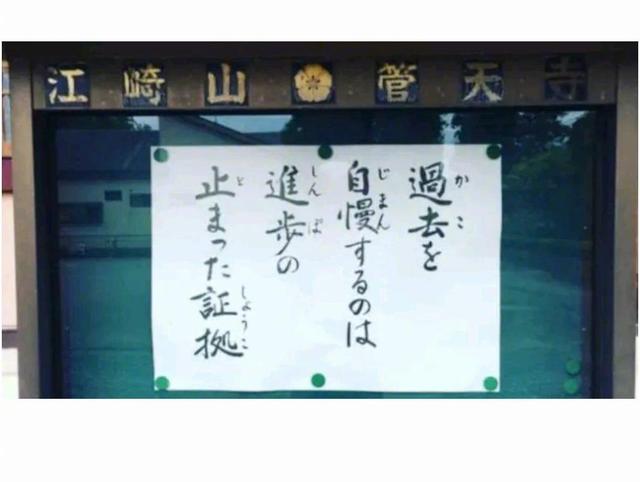 江崎山 管天寺
過去を
自慢するのは
進歩の
止まった証拠
かこ
じまん
しんぽ
と
しょうこ